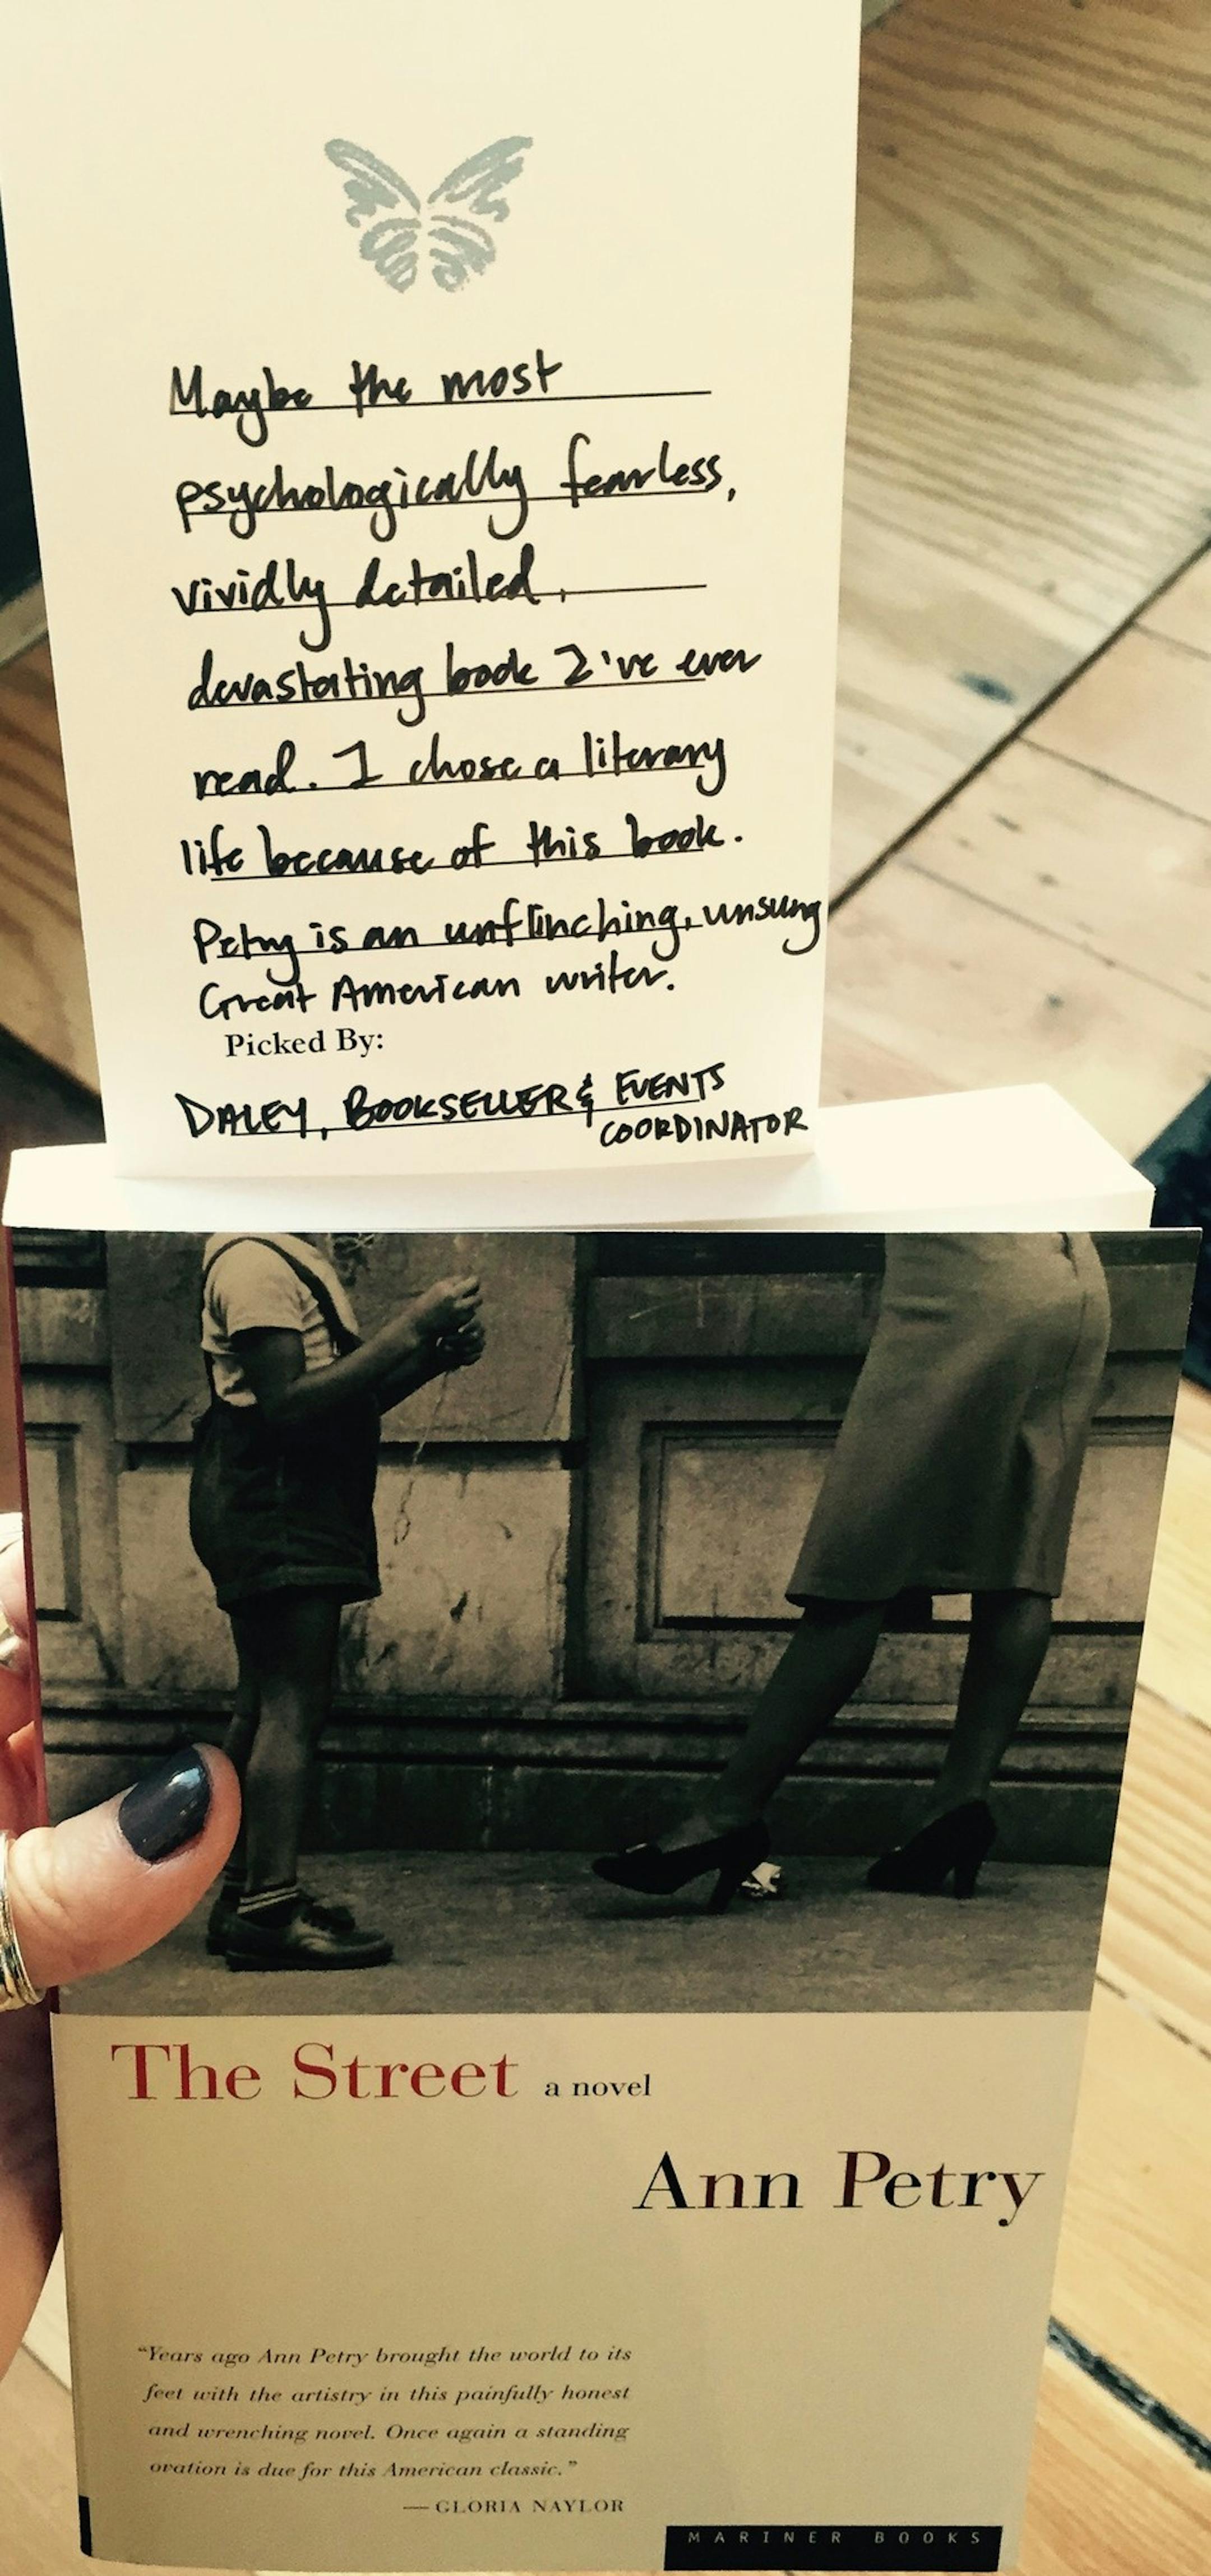 Maybe the most
psychologically fearless,
vividly detailed,
devastating book I've ever
read. I chose a literary
life because of this book.
Petry is an unflinching, unsung
Great American writer.
Picked By:
DALEY, BOOKSELLER & EVENTS
COORDINATOR
The Street a novel
Ann Petry
"Years ago Ann Petry brought the world to its
feet with the artistry in this painfully honest
and wrenching novel. Once again a standing
ovation is due for this American classic."
— GLORIA NAYLOR
MARINER BOOKS